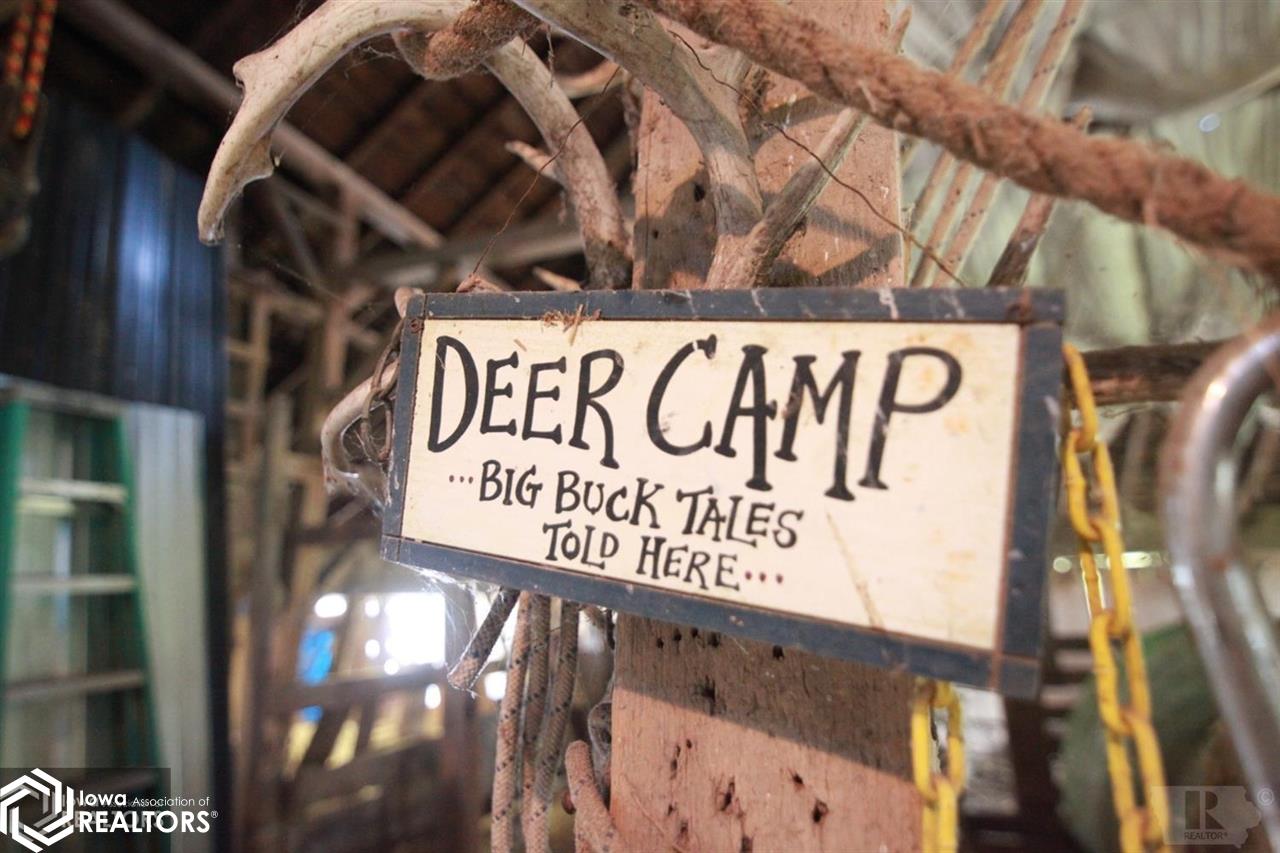 DEER CAMP
...BIG BUCK TALES
TOLD HERE...
Iowa Association of
REALTORS®
R
REALTOR®
©